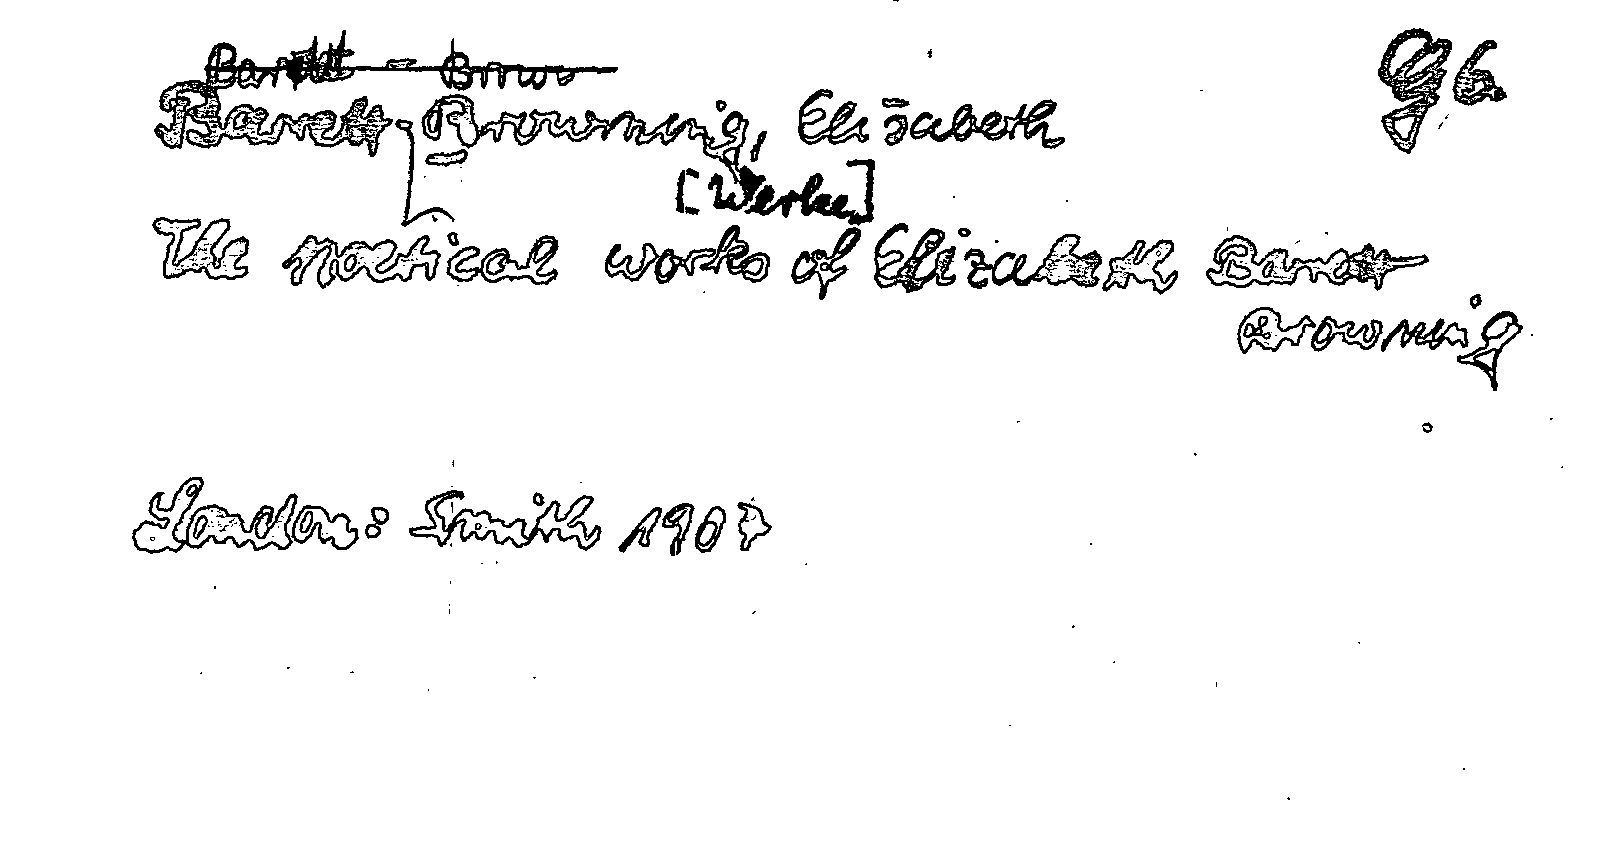 Barett - Brow
Barett-Browning, Elisabeth
[Werke]
The poetical works of Elizabeth Barett-
Browning
London: Smith